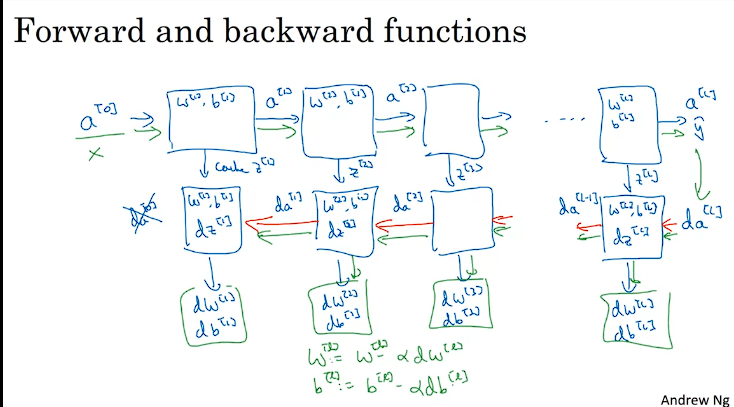 Forward and backward functions
a^[0]
x
w^[1], b^[1]
a^[1]
w^[2], b^[2]
a^[2]
....
w^[L]
b^[L]
a^[L]
ŷ
cache z^[1]
z^[2]
z^[3]
z^[L]
da^[0]
w^[1], b^[1]
dz^[1]
da^[1]
w^[2], b^[2]
dz^[2]
da^[2]
da^[L-1]
w^[L], b^[L]
dz^[L]
da^[L]
dw^[1]
db^[1]
dw^[2]
db^[2]
dw^[3]
db^[3]
dw^[L]
db^[L]
w^[l] := w^[l] - αdw^[l]
b^[l] := b^[l] - αdb^[l]
Andrew Ng